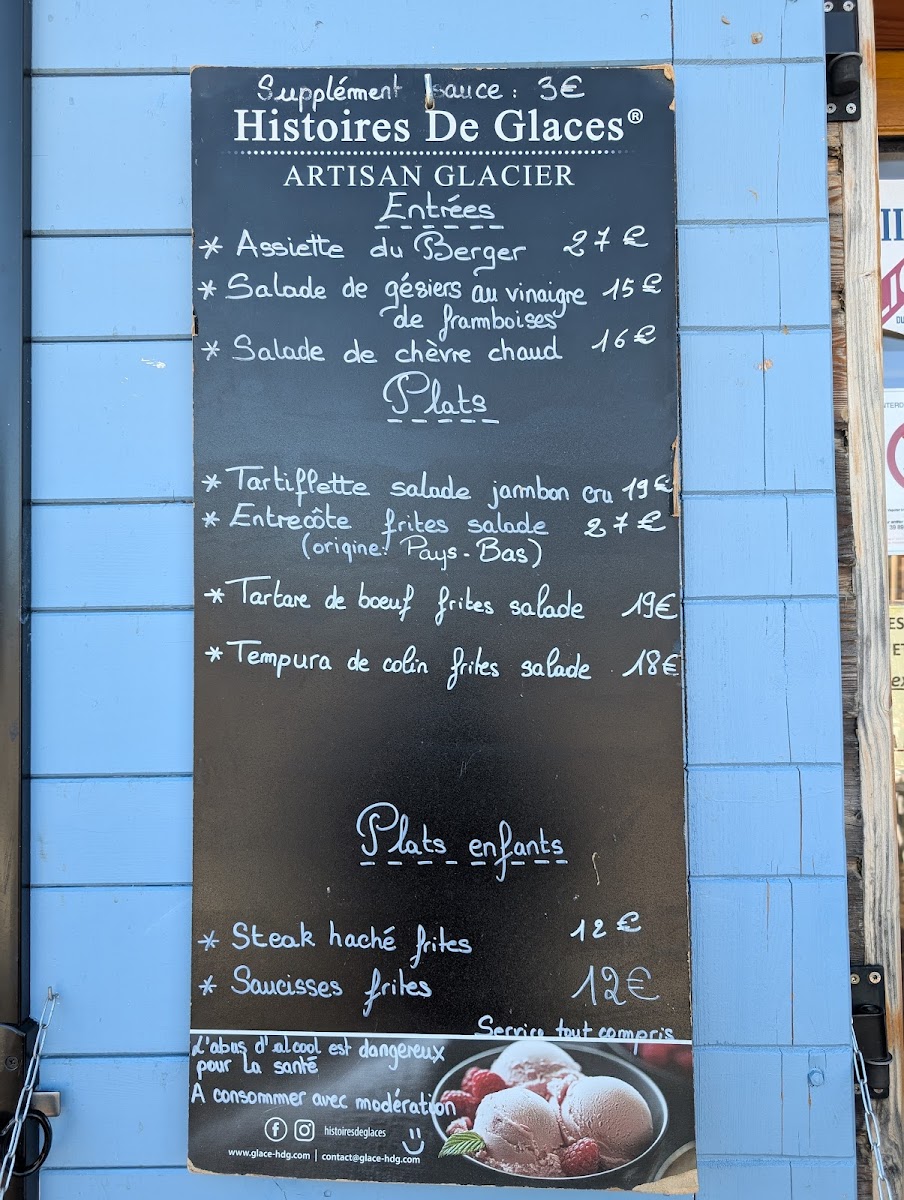 Supplément sauce : 3€
Histoires De Glaces®
ARTISAN GLACIER
Entrées
* Assiette du Berger 27€
* Salade de gésiers au vinaigre 15€
de framboises
* Salade de chèvre chaud 16€
Plats
* Tartiflette salade jambon cru 19€
* Entrecôte frites salade 27€
(origine: Pays-Bas)
* Tartare de boeuf frites salade 19€
* Tempura de colin frites salade 18€
Plats enfants
* Steak haché frites 12€
* Saucisses frites 12€
Service tout compris
L'abus d'alcool est dangereux
pour la santé
A consommer avec modération
histoiresdeglaces
www.glace-hdg.com | contact@glace-hdg.com